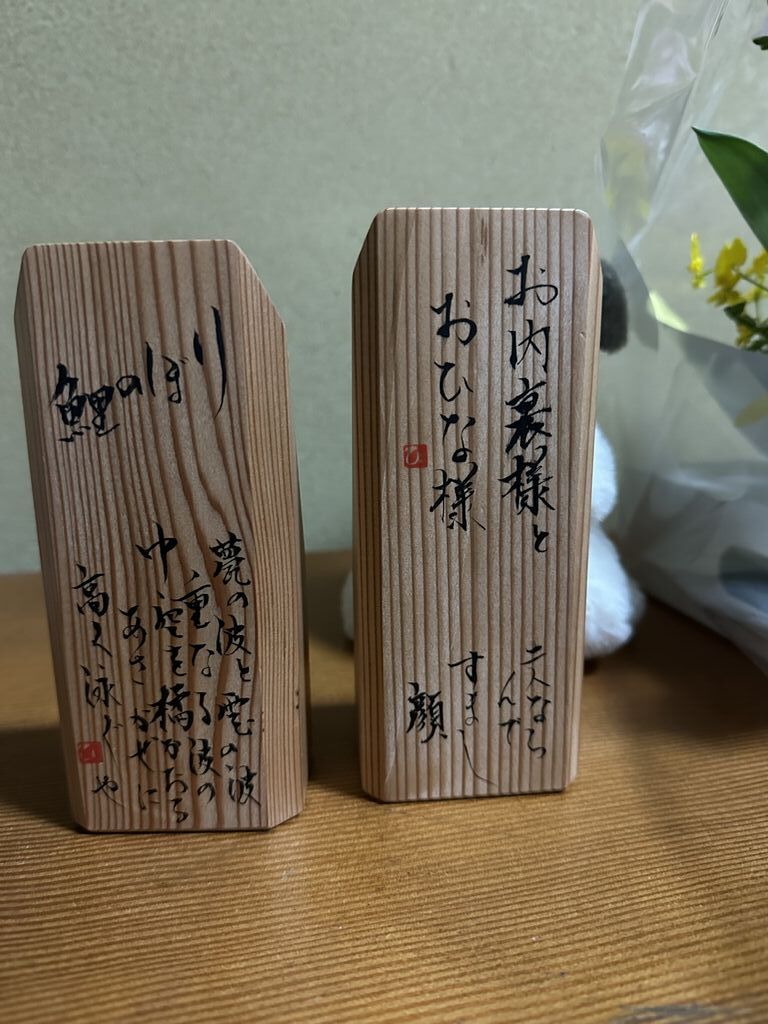 鯉のぼり
甍の波と雲の波
重なる波の
中空を橘かおる
あさかぜに
高く泳ぐや
お内裏様と
おひな様
ひ
二人なら
んで
すまし
顔